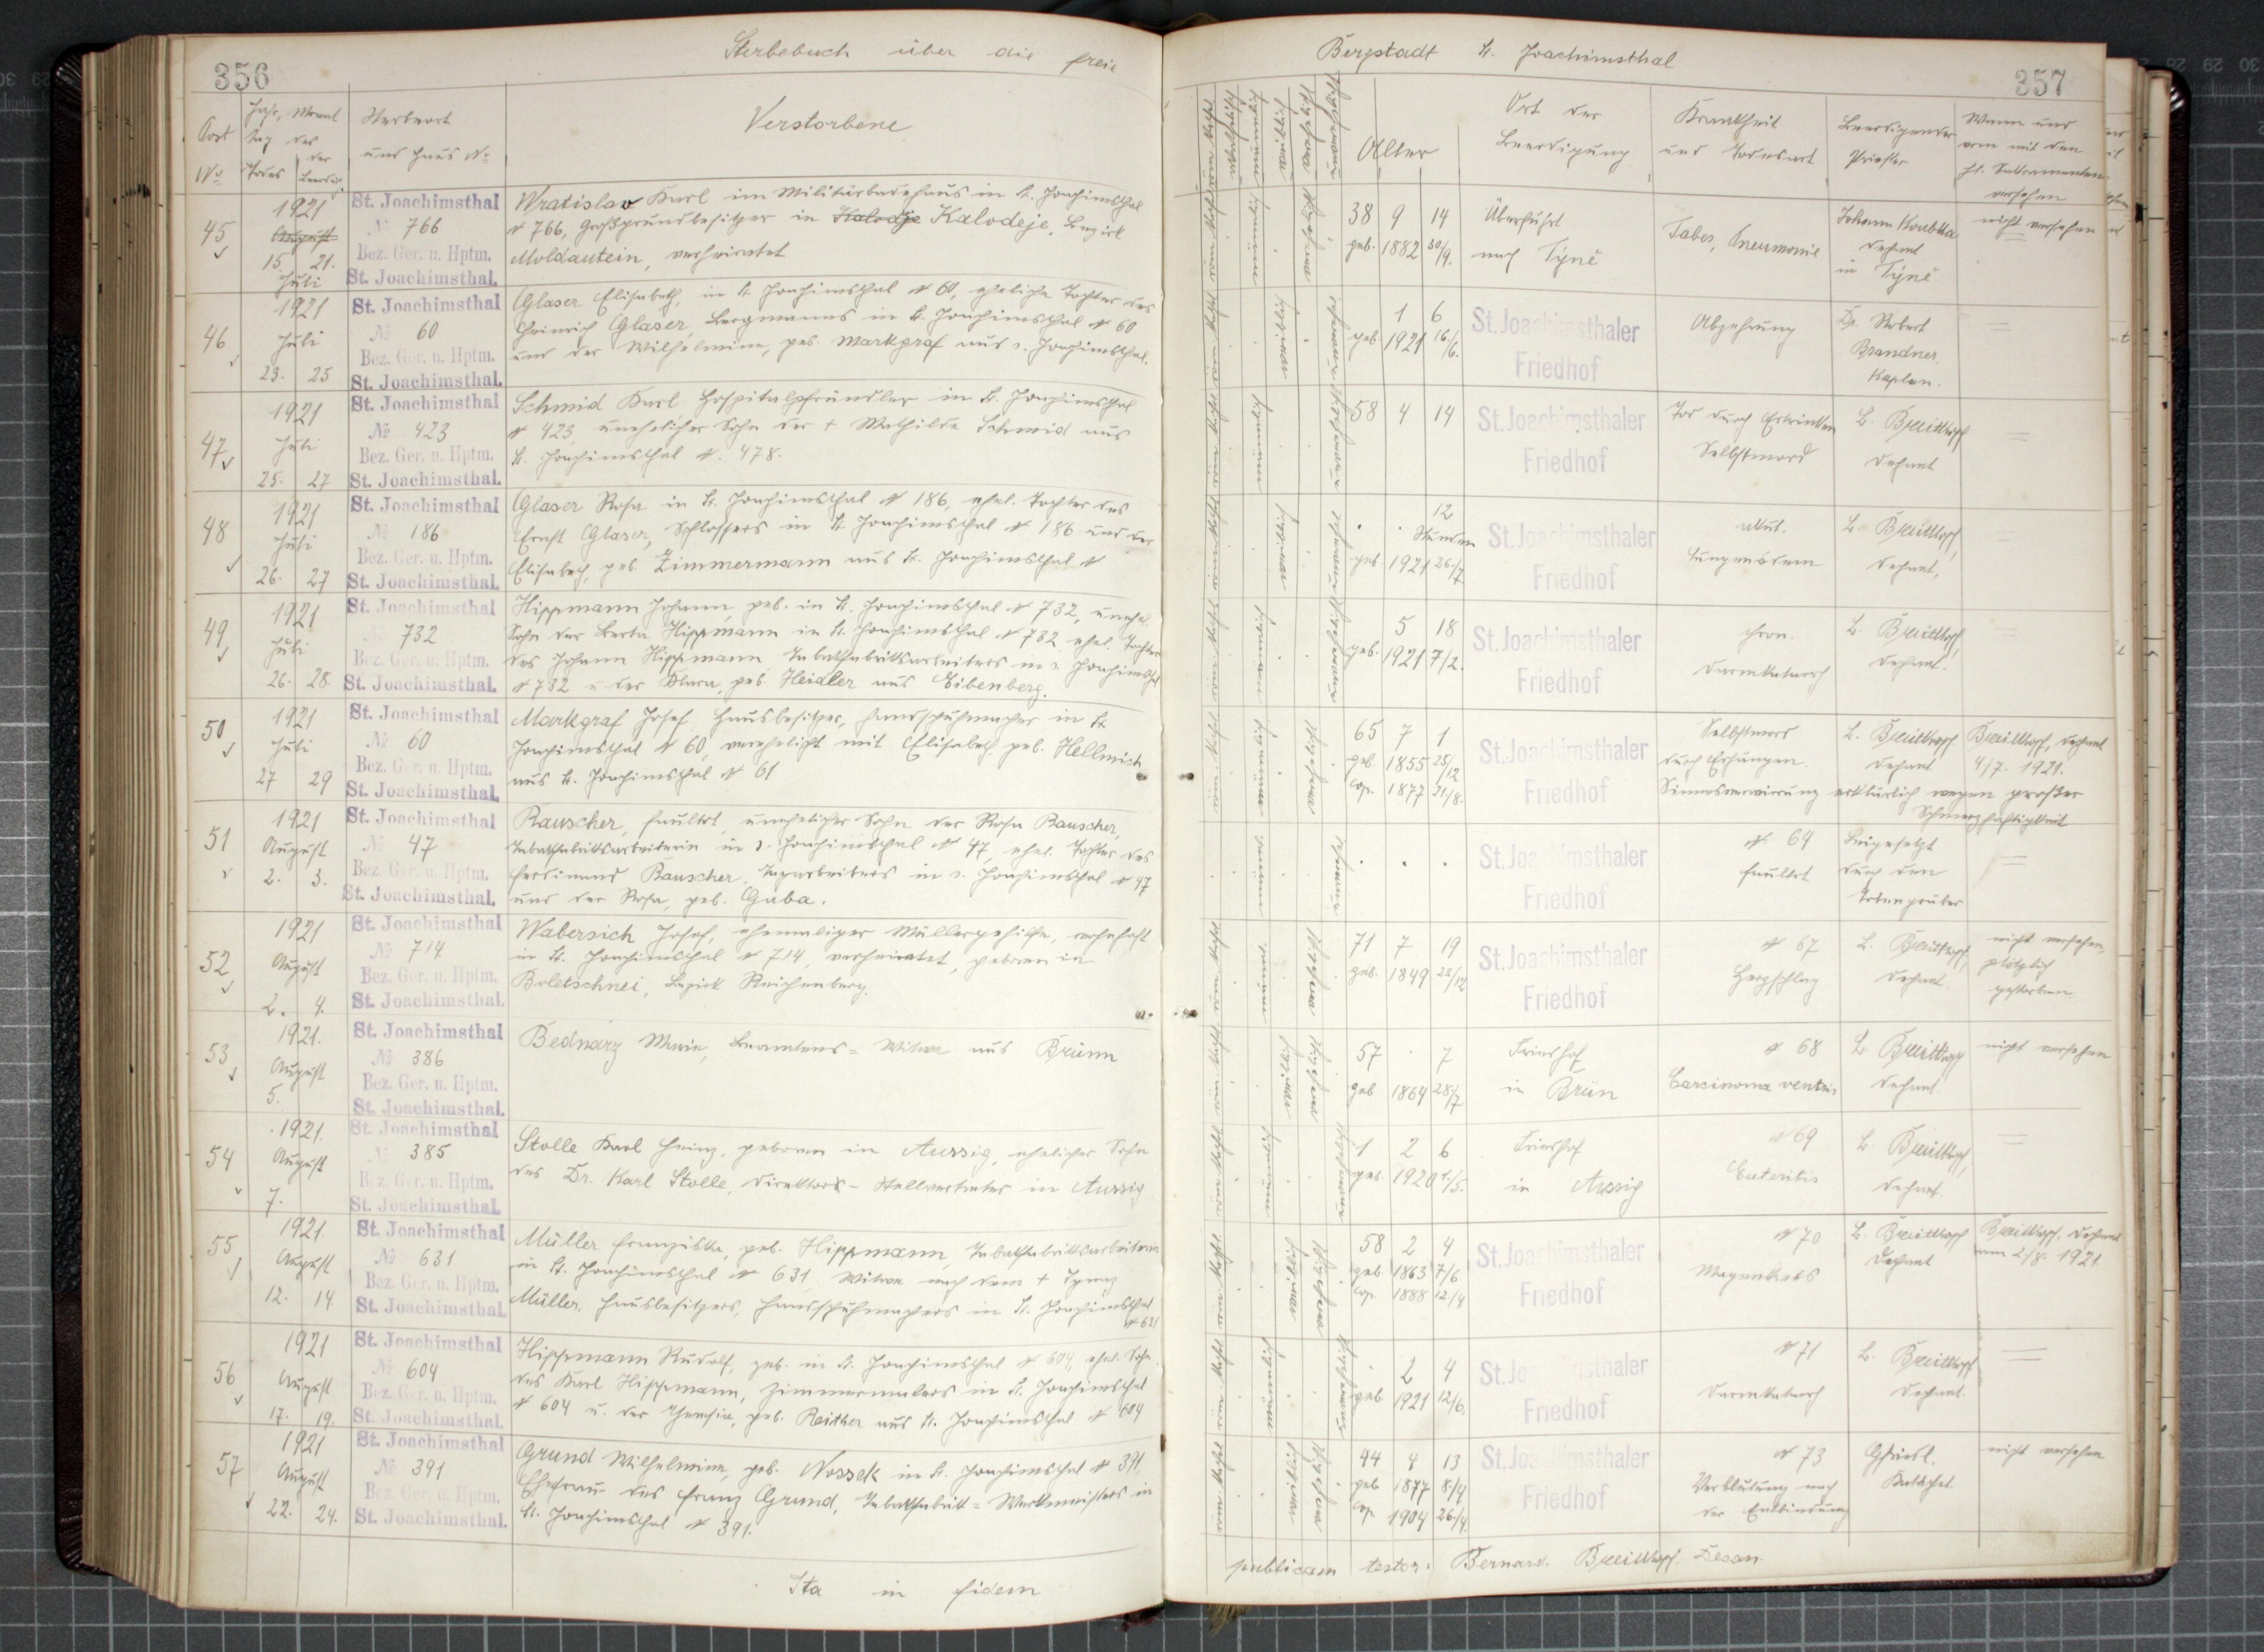 356
Sterbebuch über die freie
Post
No
Jahr, Monat
Tag des
der
Todes Beerdig.
Sterbeort
und Haus No
Verstorbene
45
1921
August
15. 21.
Juli
St. Joachimsthal
No 766
Bez. Ger. u. Hptm.
St. Joachimsthal.
Wratislav Karl im Militärbadehaus in St. Joachimsthal
No 766, Großgrundbesitzer in Kalodje Kalodeje, Bezirk
Moldautein, verheiratet
46
1921
Juli
23. 25
St. Joachimsthal
No 60
Bez. Ger. u. Hptm.
St. Joachimsthal.
Glaser Elisabeth, in St. Joachimsthal No 60, eheliche Tochter des
Heinrich Glaser, Bergmanns in St. Joachimsthal No 60
und der Wilhelmine, geb. Markgraf aus s. Joachimsthal.
47
1921
Juli
25. 27
St. Joachimsthal
No 423
Bez. Ger. u. Hptm.
St. Joachimsthal.
Schmid Karl, Hospitalpfründler in St. Joachimsthal
No 423, unehelicher Sohn der + Mathilde Schmid aus
St. Joachimsthal No. 478.
48
1921
Juli
26. 27
St. Joachimsthal
No 186
Bez. Ger. u. Hptm.
St. Joachimsthal.
Glaser Rosa in St. Joachimsthal No 186, ehel. Tochter des
Ernst Glaser, Schlossers in St. Joachimsthal No 186 und der
Elisabeth, geb. Zimmermann aus St. Joachimsthal No
49
1921
Juli
26. 28.
St. Joachimsthal
No 732
Bez. Ger. u. Hptm.
St. Joachimsthal.
Hippmann Johann, geb. in St. Joachimsthal No 732, unehel.
Sohn der Berta Hippmann in St. Joachimsthal No 732, ehel. Tochter
des Johann Hippmann, Tabakfabriksarbeiters in s. Joachimsthal
No 732 u. der Klara, geb. Heidler aus Eibenberg.
50
1921
Juli
27 29
St. Joachimsthal
No 60
Bez. Ger. u. Hptm.
St. Joachimsthal.
Markgraf Josef, Hausbesitzer, Handschuhmacher in St.
Joachimsthal No 60, verehelicht mit Elisabeth geb. Hellmich
aus St. Joachimsthal No 61
51
1921
August
2. 3.
St. Joachimsthal
No 47
Bez. Ger. u. Hptm.
St. Joachimsthal.
Rauscher, faultot, unehelicher Sohn der Rosa Rauscher,
Tabakfabriksarbeiterin in s. Joachimsthal No 47, ehel. Tochter des
Ferdinand Rauscher, Tagarbeiters in s. Joachimsthal No 47
und der Rosa, geb. Gaba.
52
1921
August
2. 4.
St. Joachimsthal
No 714
Bez. Ger. u. Hptm.
St. Joachimsthal.
Wabersich Josef, ehemaliger Müllergehilfe, wohnhaft
in St. Joachimsthal No 714, verheiratet, geboren in
Boletschnei, Bezirk Reichenberg.
53
1921.
August
5.
St. Joachimsthal
No 386
Bez. Ger. u. Hptm.
St. Joachimsthal.
Bednarz Marie, Beamtens-Witwe aus Brünn
54
1921.
August
7.
St. Joachimsthal
No 385
Bez. Ger. u. Hptm.
St. Joachimsthal.
Stolle Karl Heinz, geboren in Aussig, ehelicher Sohn
des Dr. Karl Stolle, Direktors-Stellvertreter in Aussig
55
1921.
August
12. 14.
St. Joachimsthal
No 631
Bez. Ger. u. Hptm.
St. Joachimsthal.
Müller Franziska, geb. Hippmann, Tabakfabriksarbeiterin
in St. Joachimsthal No 631, Witwe nach dem + Ignaz
Müller, Hausbesitzers, Handschuhmachers in St. Joachimsthal
No 631
56
1921
August
17. 19.
St. Joachimsthal
No 604
Bez. Ger. u. Hptm.
St. Joachimsthal.
Hippmann Rudolf, geb. in St. Joachimsthal No 604, ehel. Sohn
des Karl Hippmann, Zimmermalers in St. Joachimsthal
No 604 u. der Theresia, geb. Reither aus St. Joachimsthal No 604
57
1921
August
22. 24.
St. Joachimsthal
No 391
Bez. Ger. u. Hptm.
St. Joachimsthal.
Grund Wilhelmine, geb. Nossek in St. Joachimsthal No 391,
Ehefrau des Franz Grund, Tabakfabrik-Werkmeisters in
St. Joachimsthal No 391.
Ita in fidem
Bergstadt St. Joachimsthal
357
Alter
Ort der
Beerdigung
Krankheit
und Todesart
Beerdigender
Priester
Wann und
von mit den
hl. Sakramenten
versehen
38 9 14
geb. 1882 30/9.
Überführt
nach Týně
Tabes, Pneumonie
Johann Koubtka
Dechant
in Týně
nicht versehen
1 6
geb. 1921 16/6.
St. Joachimsthaler
Friedhof
Abzehrung
Dr. Robert
Brandner,
Kaplan.
58 4 14
St. Joachimsthaler
Friedhof
Tod durch Ertrinken
Selbstmord
B. Breitkopf
Dechant
12
Stunden
geb 1921 26./7
St. Joachimsthaler
Friedhof
akut.
Lungenödem
B. Breitkopf,
Dechant,
5 18
geb. 1921 7/2.
St. Joachimsthaler
Friedhof
chron.
Darmkatarrh
B. Breitkopf,
Dechant.
65 7 1
geb. 1855 25/12
Cop. 1877 21/8.
St. Joachimsthaler
Friedhof
Selbstmord
durch Erhängen.
B. Breitkopf.
Dechant
Breitkopf, Dechant
4/7. 1921.
Sinnesverwirrung erklärlich wegen großer
Schmerzhaftigkeit
St. Joachimsthaler
Friedhof
No 64
faultot
Beigesetzt
durch den
Totengräber
71 7 19
geb. 1849 23/12
St. Joachimsthaler
Friedhof
No 67
Herzschlag
B. Breitkopf,
Dechant.
nicht versehen,
plötzlich
gestorben
57 7
geb 1864 28/7
Friedhof
in Brün
No 68
Carcinoma ventris
B. Breitkopf
Dechant
nicht versehen
1 2 6
geb. 1920 1./5.
Friedhof
in Aussig
No 69
Enteritis
B. Breitkopf,
Dechant.
58 2 4
geb. 1863 7/6
Cop. 1888 12/4
St. Joachimsthaler
Friedhof
No 70
Magenkrebs
B. Breitkopf
Dechant
Breitkopf, Dechant
am 2/8. 1921
2 4
geb. 1921 12/6.
St. Joachimsthaler
Friedhof
No 71
Darmkatarrh
B. Breitkopf
Dechant.
44 4 13
geb 1877 8./4
Cop 1904 26./4.
St. Joachimsthaler
Friedhof
No 73
Verblutung nach
der Entbindung
Katechet.
nicht versehen
publicam testor: Bernard. Breitkopf. Decan.